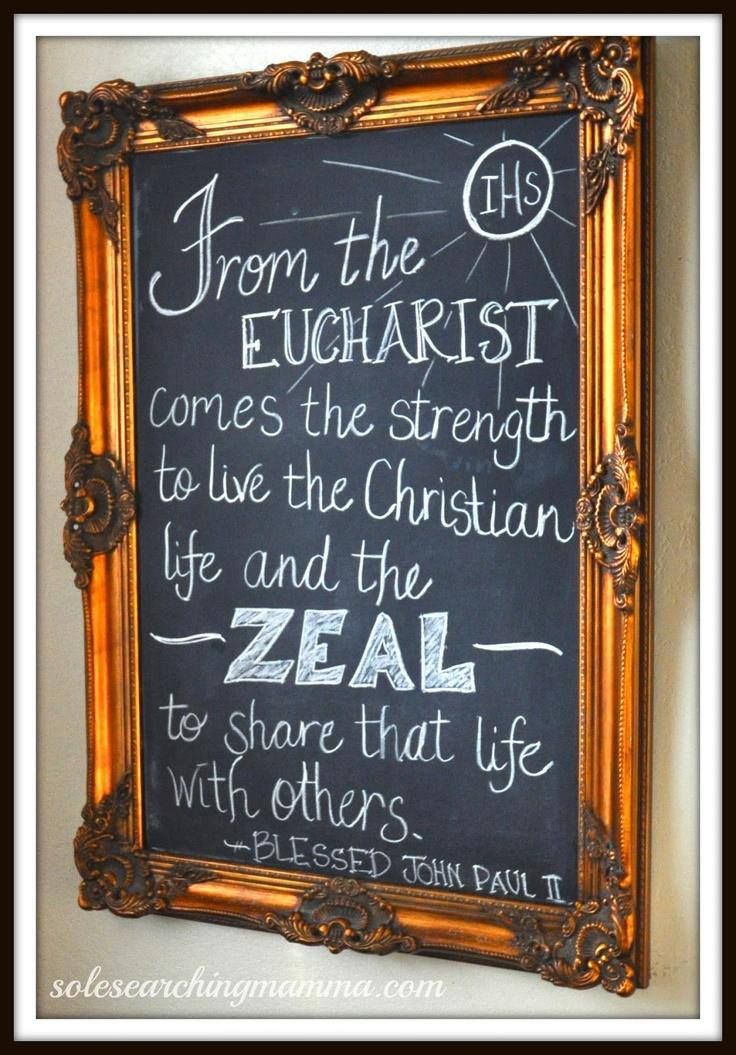 IHS
From the
EUCHARIST
comes the strength
to live the Christian
life and the
—ZEAL—
to share that life
with others.
—BLESSED JOHN PAUL II
solesearchingmamma.com